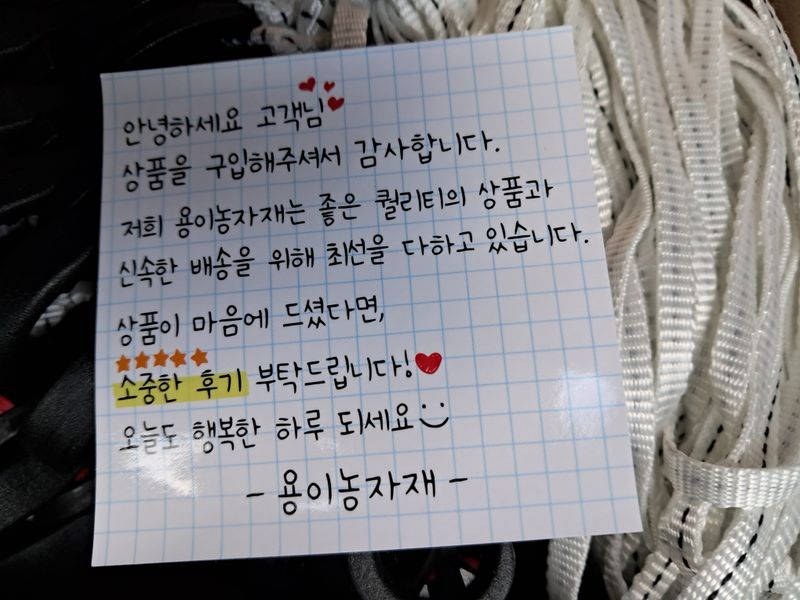 안녕하세요 고객님
상품을 구입해주셔서 감사합니다.
저희 용이농자재는 좋은 퀄리티의 상품과
신속한 배송을 위해 최선을 다하고 있습니다.
상품이 마음에 드셨다면,
소중한 후기 부탁드립니다!
오늘도 행복한 하루 되세요
- 용이농자재 -